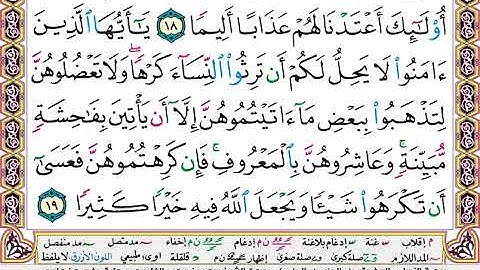 أُوْلَٰٓئِكَ أَعۡتَدۡنَا لَهُمۡ عَذَابًا أَلِيمٗا ١٨ يَٰٓأَيُّهَا ٱلَّذِينَ
ءَامَنُواْ لَا يَحِلُّ لَكُمۡ أَن تَرِثُواْ ٱلنِّسَآءَ كَرۡهٗاۖ وَلَا تَعۡضُلُوهُنَّ
لِتَذۡهَبُواْ بِبَعۡضِ مَآ ءَاتَيۡتُمُوهُنَّ إِلَّآ أَن يَأۡتِينَ بِفَٰحِشَةٖ
مُّبَيِّنَةٖۚ وَعَاشِرُوهُنَّ بِٱلۡمَعۡرُوفِۚ فَإِن كَرِهۡتُمُوهُنَّ فَعَسَىٰٓ
أَن تَكۡرَهُواْ شَيۡـٔٗا وَيَجۡعَلَ ٱللَّهُ فِيهِ خَيۡرٗا كَثِيرٗا ١٩
م إقلاب غنة إدغام بلاغنة ن م إدغام ن م إخفاء مد متصل مد منفصل
المد اللازم صلة كبرى صلة صغرى إظهار ن م قلقلة اوى: طبيعي اللون الأزرق: لا يلفظ